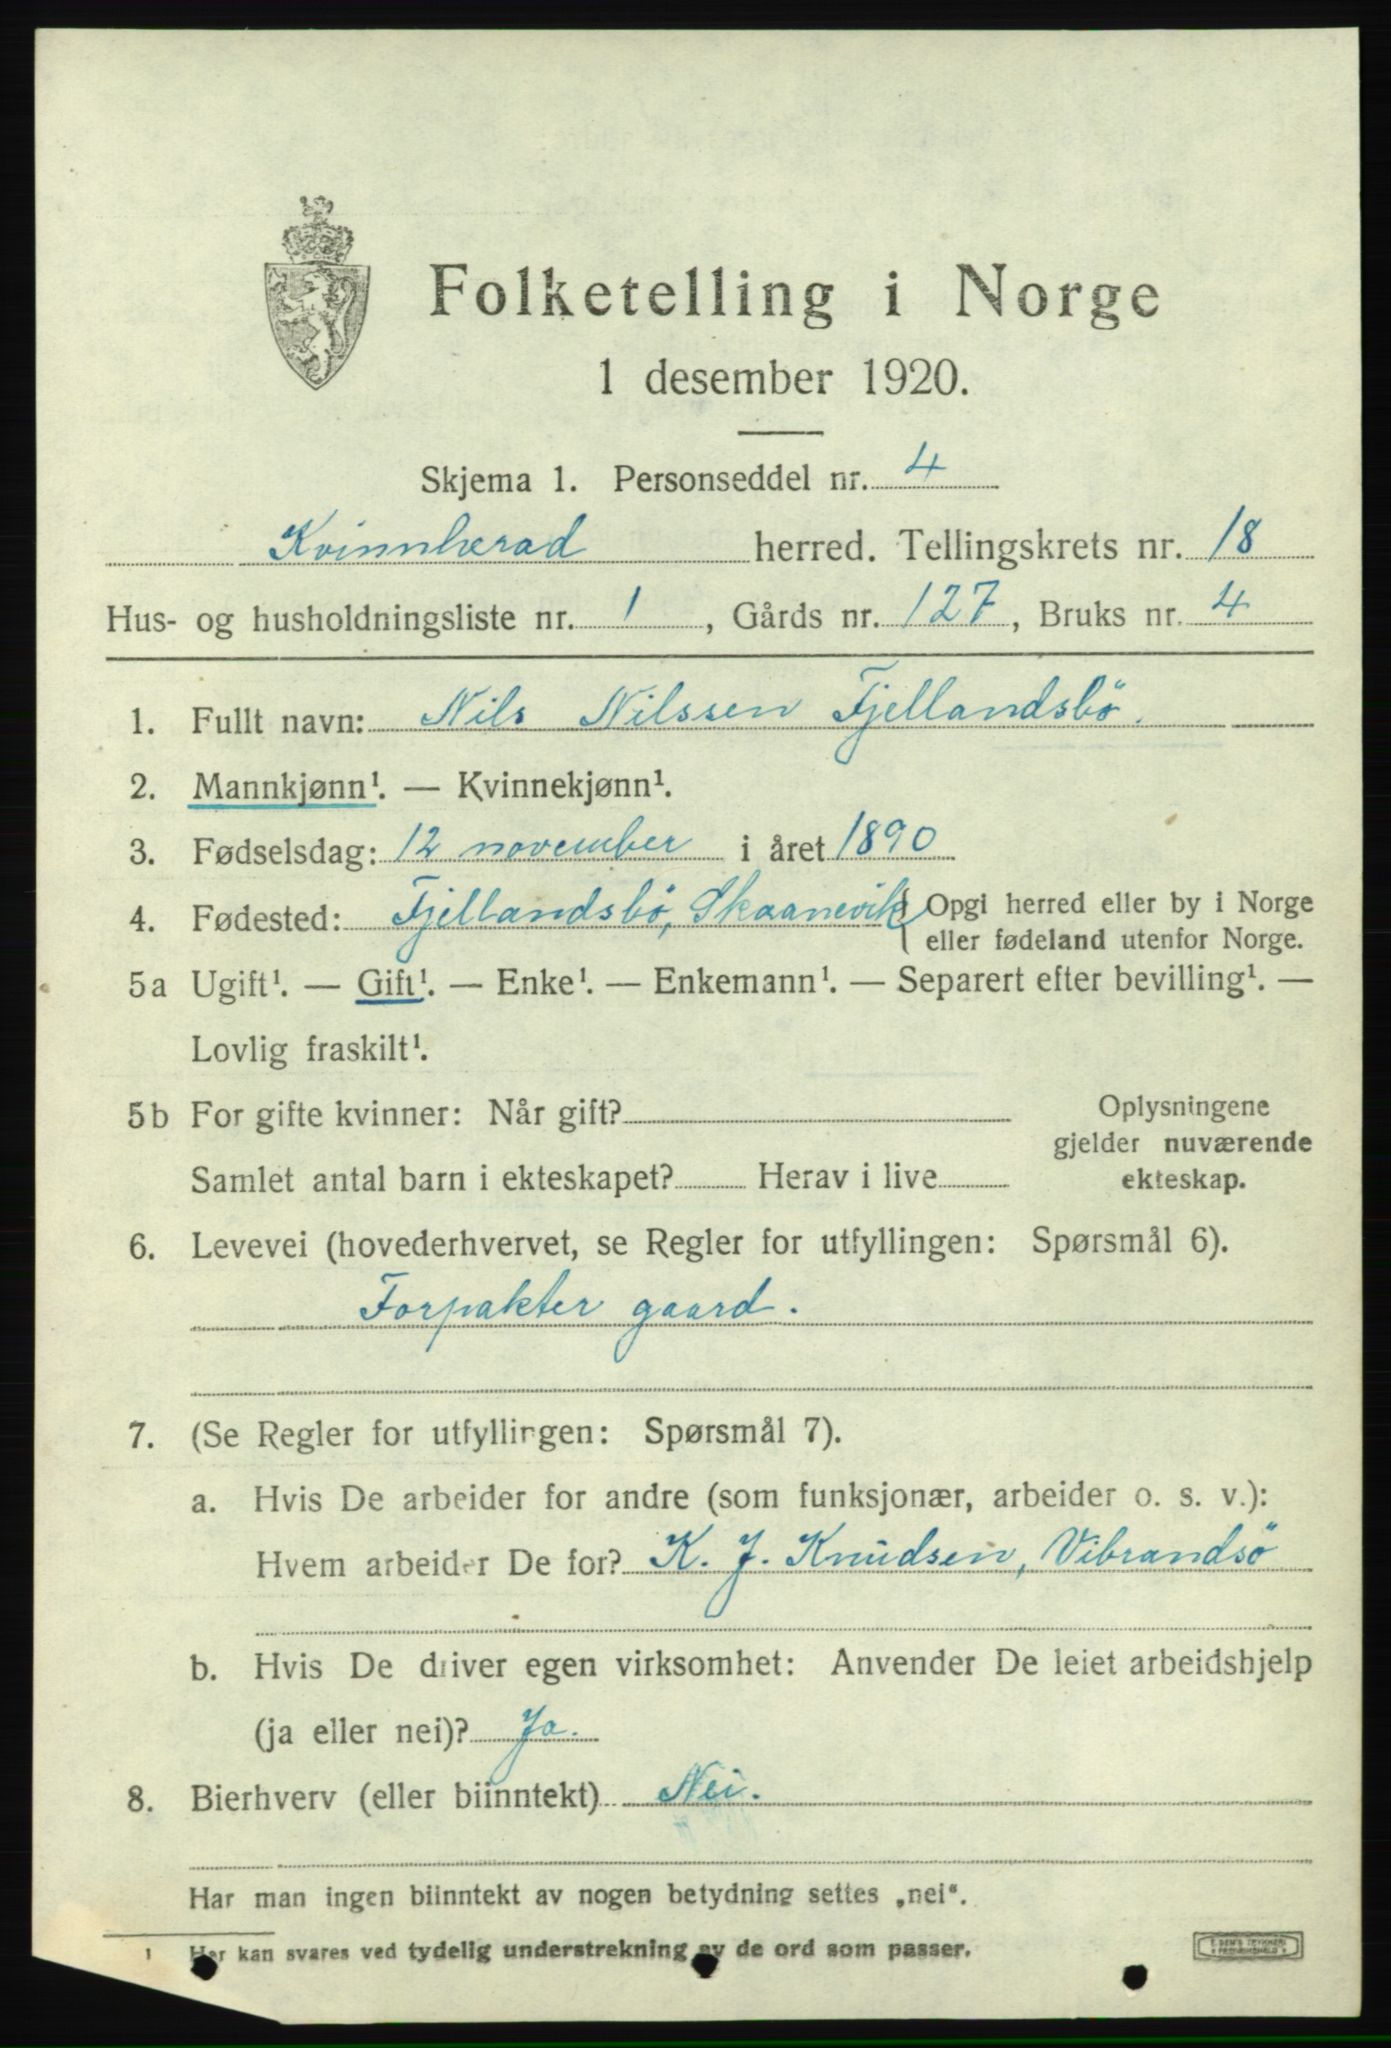 Folketelling i Norge
1 desember 1920.
Skjema 1. Personseddel nr. 4
Kvinnherad herred. Tellingskrets nr. 18
Hus- og husholdningsliste nr. 1, Gårds nr. 127, Bruks nr. 4
1. Fullt navn: Nils Nilssen Fjellandsbö.
2. Mannkjønn¹. — Kvinnekjønn¹.
3. Fødselsdag: 12 november i året 1890
4. Fødested: Fjellandsbö, Skaanevik { Opgi herred eller by i Norge
eller fødeland utenfor Norge.
5a Ugift¹. — Gift¹. — Enke¹. — Enkemann¹. — Separert efter bevilling¹. —
Lovlig fraskilt¹.
5b For gifte kvinner: Når gift? Oplysningene
gjelder nuværende
Samlet antal barn i ekteskapet? Herav i live ekteskap.
6. Levevei (hovederhvervet, se Regler for utfyllingen: Spørsmål 6).
Forpakter gaard.
7. (Se Regler for utfyllingen: Spørsmål 7).
a. Hvis De arbeider for andre (som funksjonær, arbeider o. s. v.):
Hvem arbeider De for? K. J. Knudsen, Vibrandsö
b. Hvis De driver egen virksomhet: Anvender De leiet arbeidshjelp
(ja eller nei)? Ja.
8. Bierhverv (eller biinntekt) Nei.
Har man ingen biinntekt av nogen betydning settes „nei“.
¹ Her kan svares ved tydelig understrekning av de ord som passer.